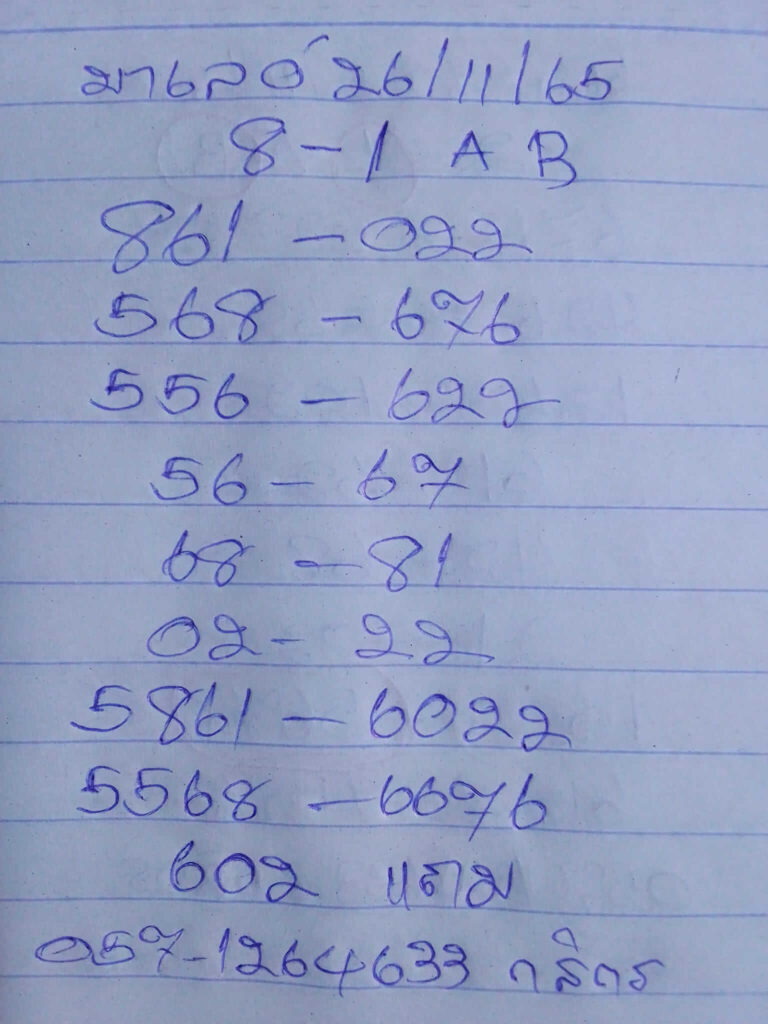 มาเลย์ 26/11/65
8-1 A B
861 - 022
568 - 676
556 - 622
56 - 67
68 - 81
02 - 22
5861 - 6022
5568 - 6676
602 แถม
057-1264633